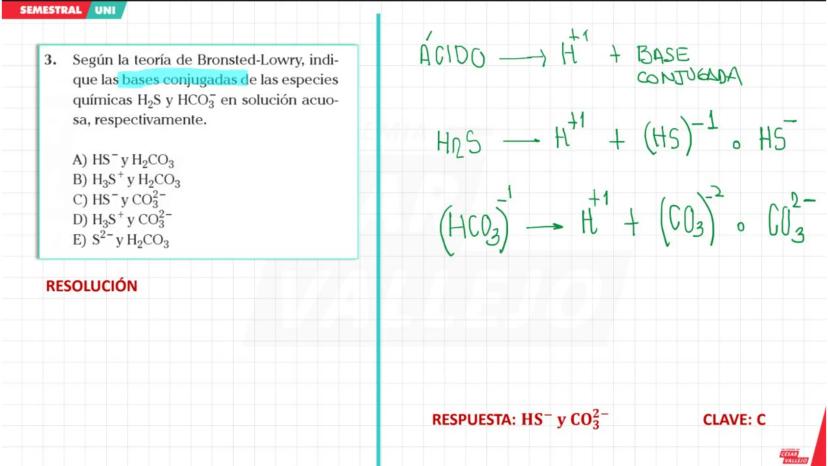 SEMESTRAL UNI
3. Según la teoría de Bronsted-Lowry, indi-
que las bases conjugadas de las especies
químicas H₂S y HCO₃⁻ en solución acuo-
sa, respectivamente.
A) HS⁻ y H₂CO₃
B) H₃S⁺ y H₂CO₃
C) HS⁻ y CO₃²⁻
D) H₃S⁺ y CO₃²⁻
E) S²⁻ y H₂CO₃
RESOLUCIÓN
ÁCIDO → H⁺¹ + BASE
CONJUGADA
H₂S — H⁺¹ + (HS)⁻¹ o HS⁻
(HCO₃)⁻¹ → H⁺¹ + (CO₃)⁻² o CO₃²⁻
VALLEJO
RESPUESTA: HS⁻ y CO₃²⁻ CLAVE: C
CÉSAR
VALLEJO